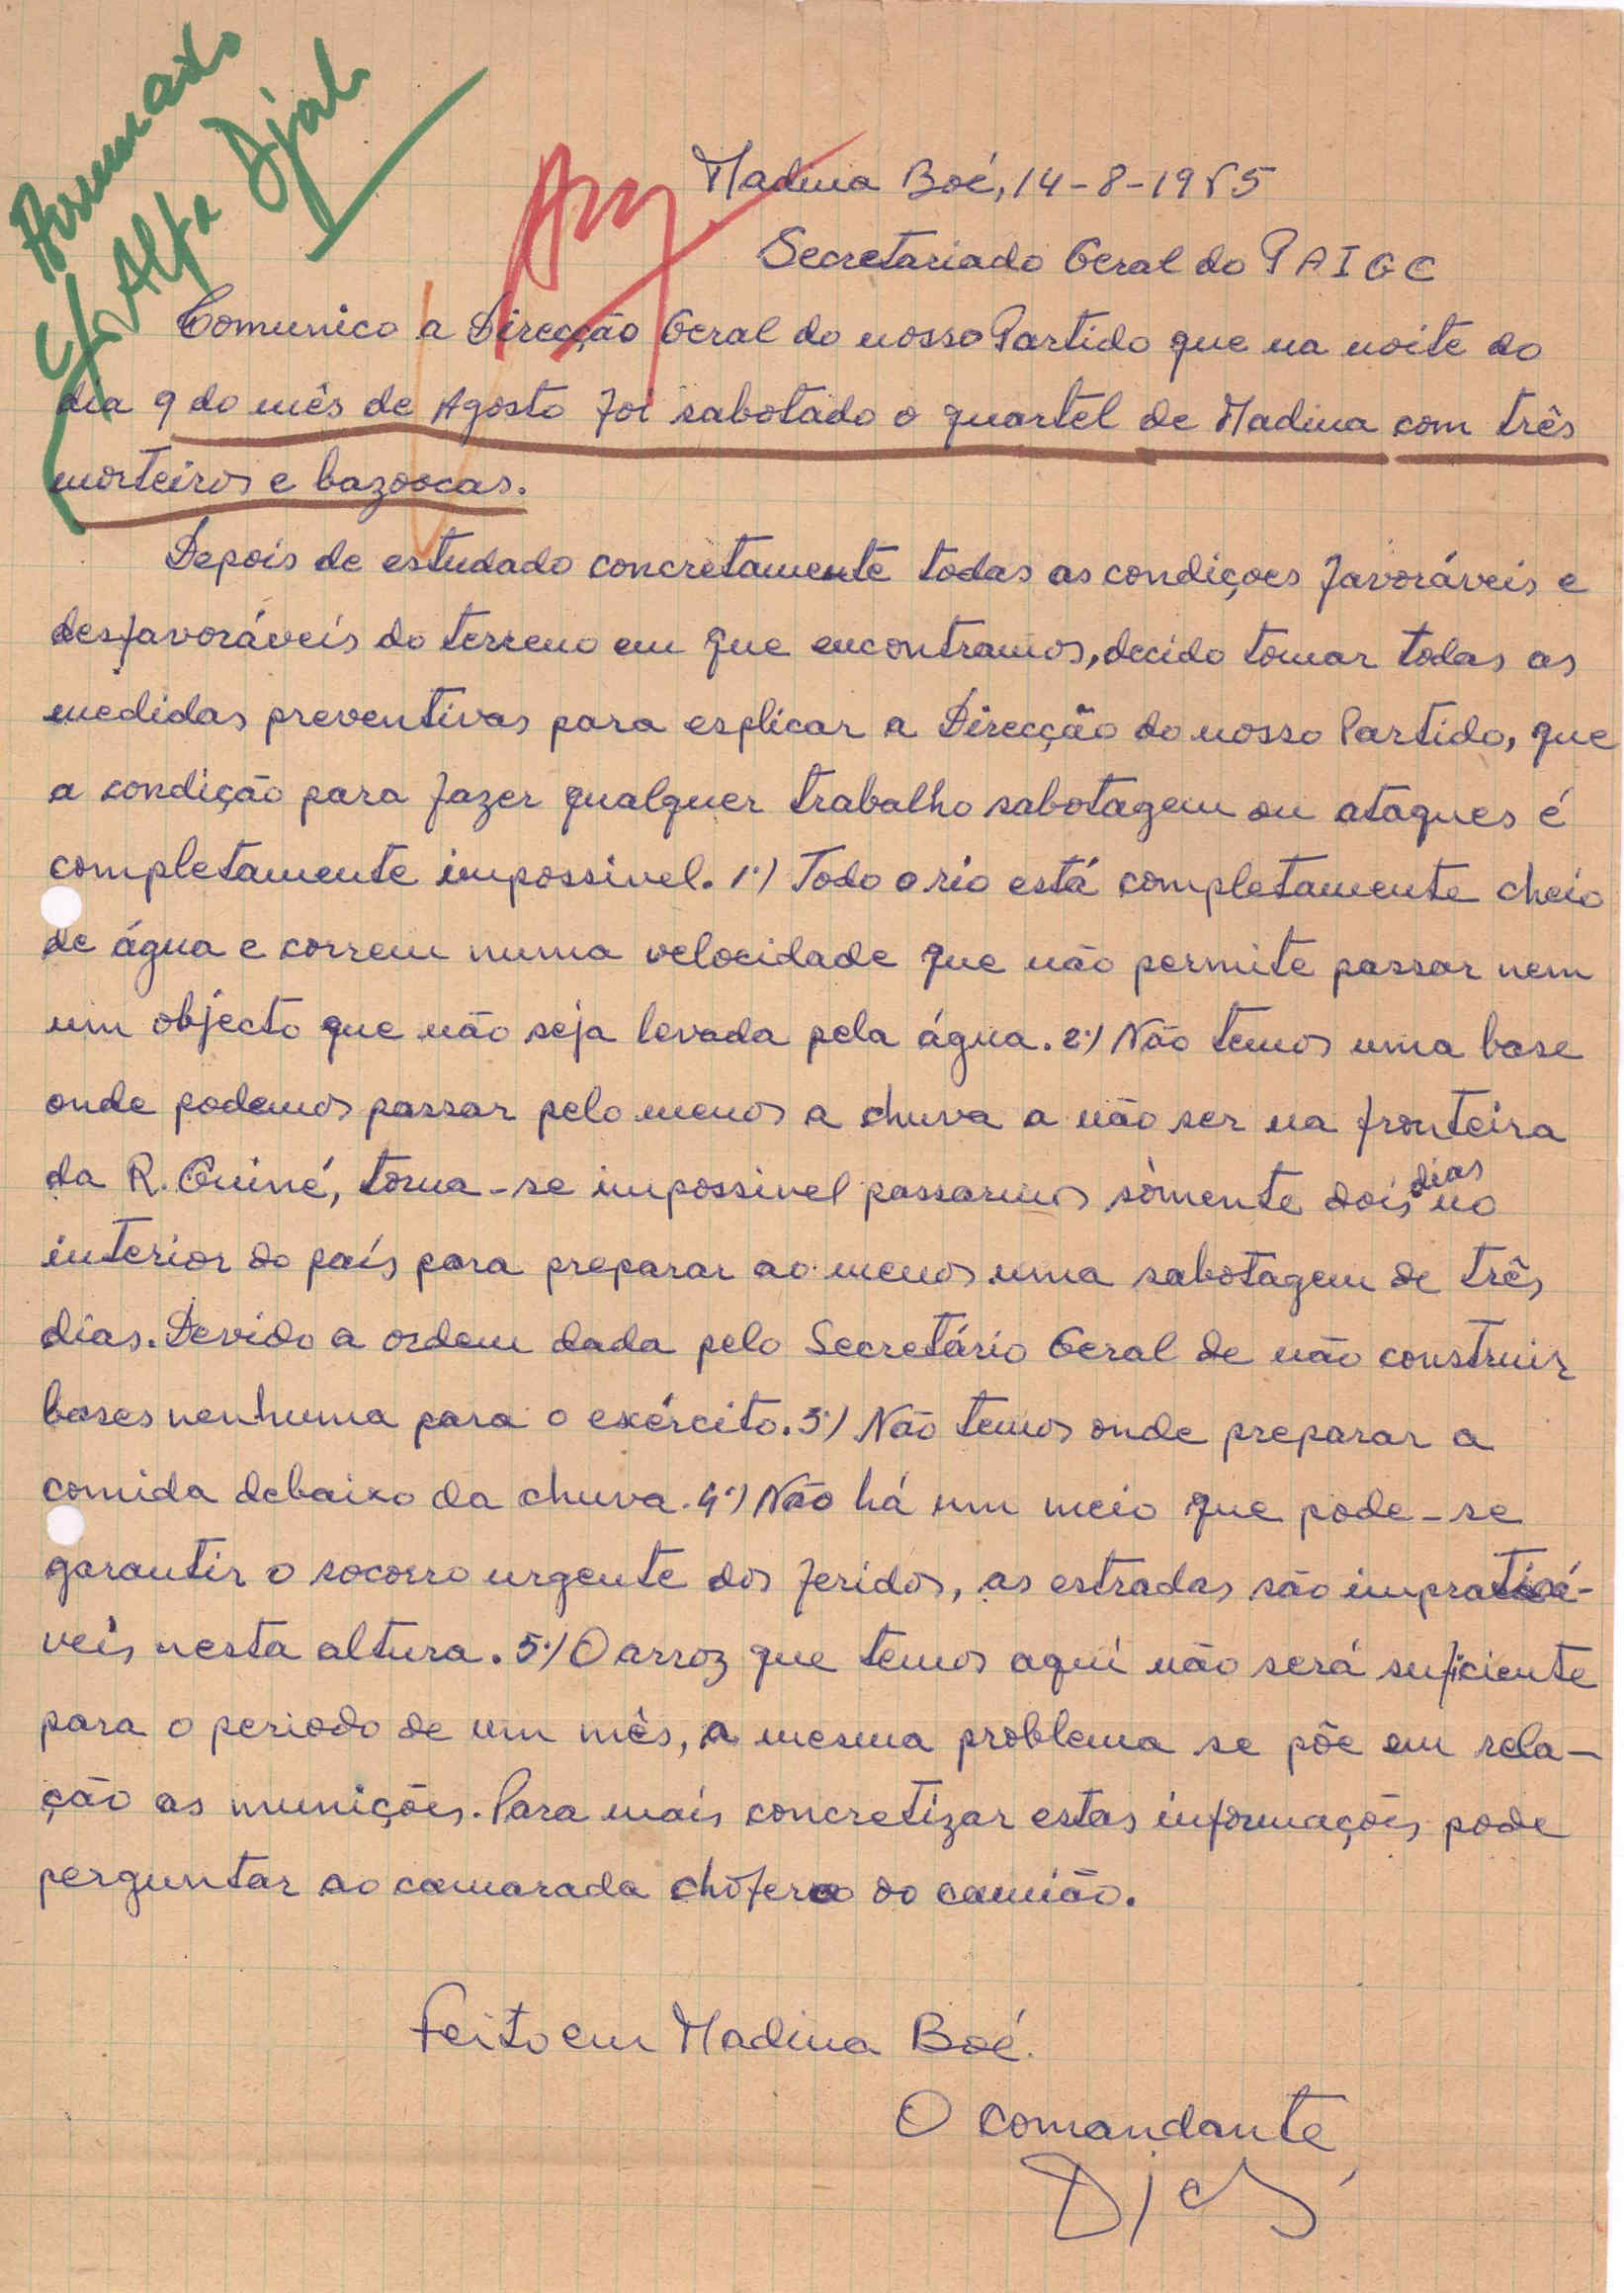 Alfa Djaló
Madina Boé, 14-8-1965
Secretariado Geral do PAIGC
Comunico a Direcção Geral do nosso Partido que na noite do
dia 9 do mês de Agosto foi sabotado o quartel de Madina com três
morteiros e bazoocas.
Depois de estudado concretamente todas as condiçoes favoráveis e
desfavoráveis do terreno em que encontramos, decido tomar todas as
medidas preventivas para esplicar a Direcção do nosso Partido, que
a condição para fazer qualquer trabalho sabotagem ou ataques é
completamente impossivel. 1º) Todo o rio está completamente cheio
de água e correm numa velocidade que não permite passar nem
um objecto que não seja levada pela água. 2º) Não temos uma base
onde podemos passar pelo menos a chuva a não ser na fronteira
da R. Guiné, torna-se impossivel passarmos sòmente dois dias no
interior do país para preparar ao menos uma sabotagem de três
dias. Devido a ordem dada pelo Secretário Geral de não construir
bases nenhuma para o exército. 3º) Não temos onde preparar a
comida debaixo da chuva. 4º) Não há um meio que pode-se
garantir o socorro urgente dos feridos, as estradas são impraticá-
veis nesta altura. 5º) O arroz que temos aqui não será suficiente
para o periodo de um mês, a mesma problema se põe em rela-
ção as munições. Para mais concretizar estas informações pode
perguntar ao camarada chófer do camião.
Feito em Madina Boé.
O Comandante